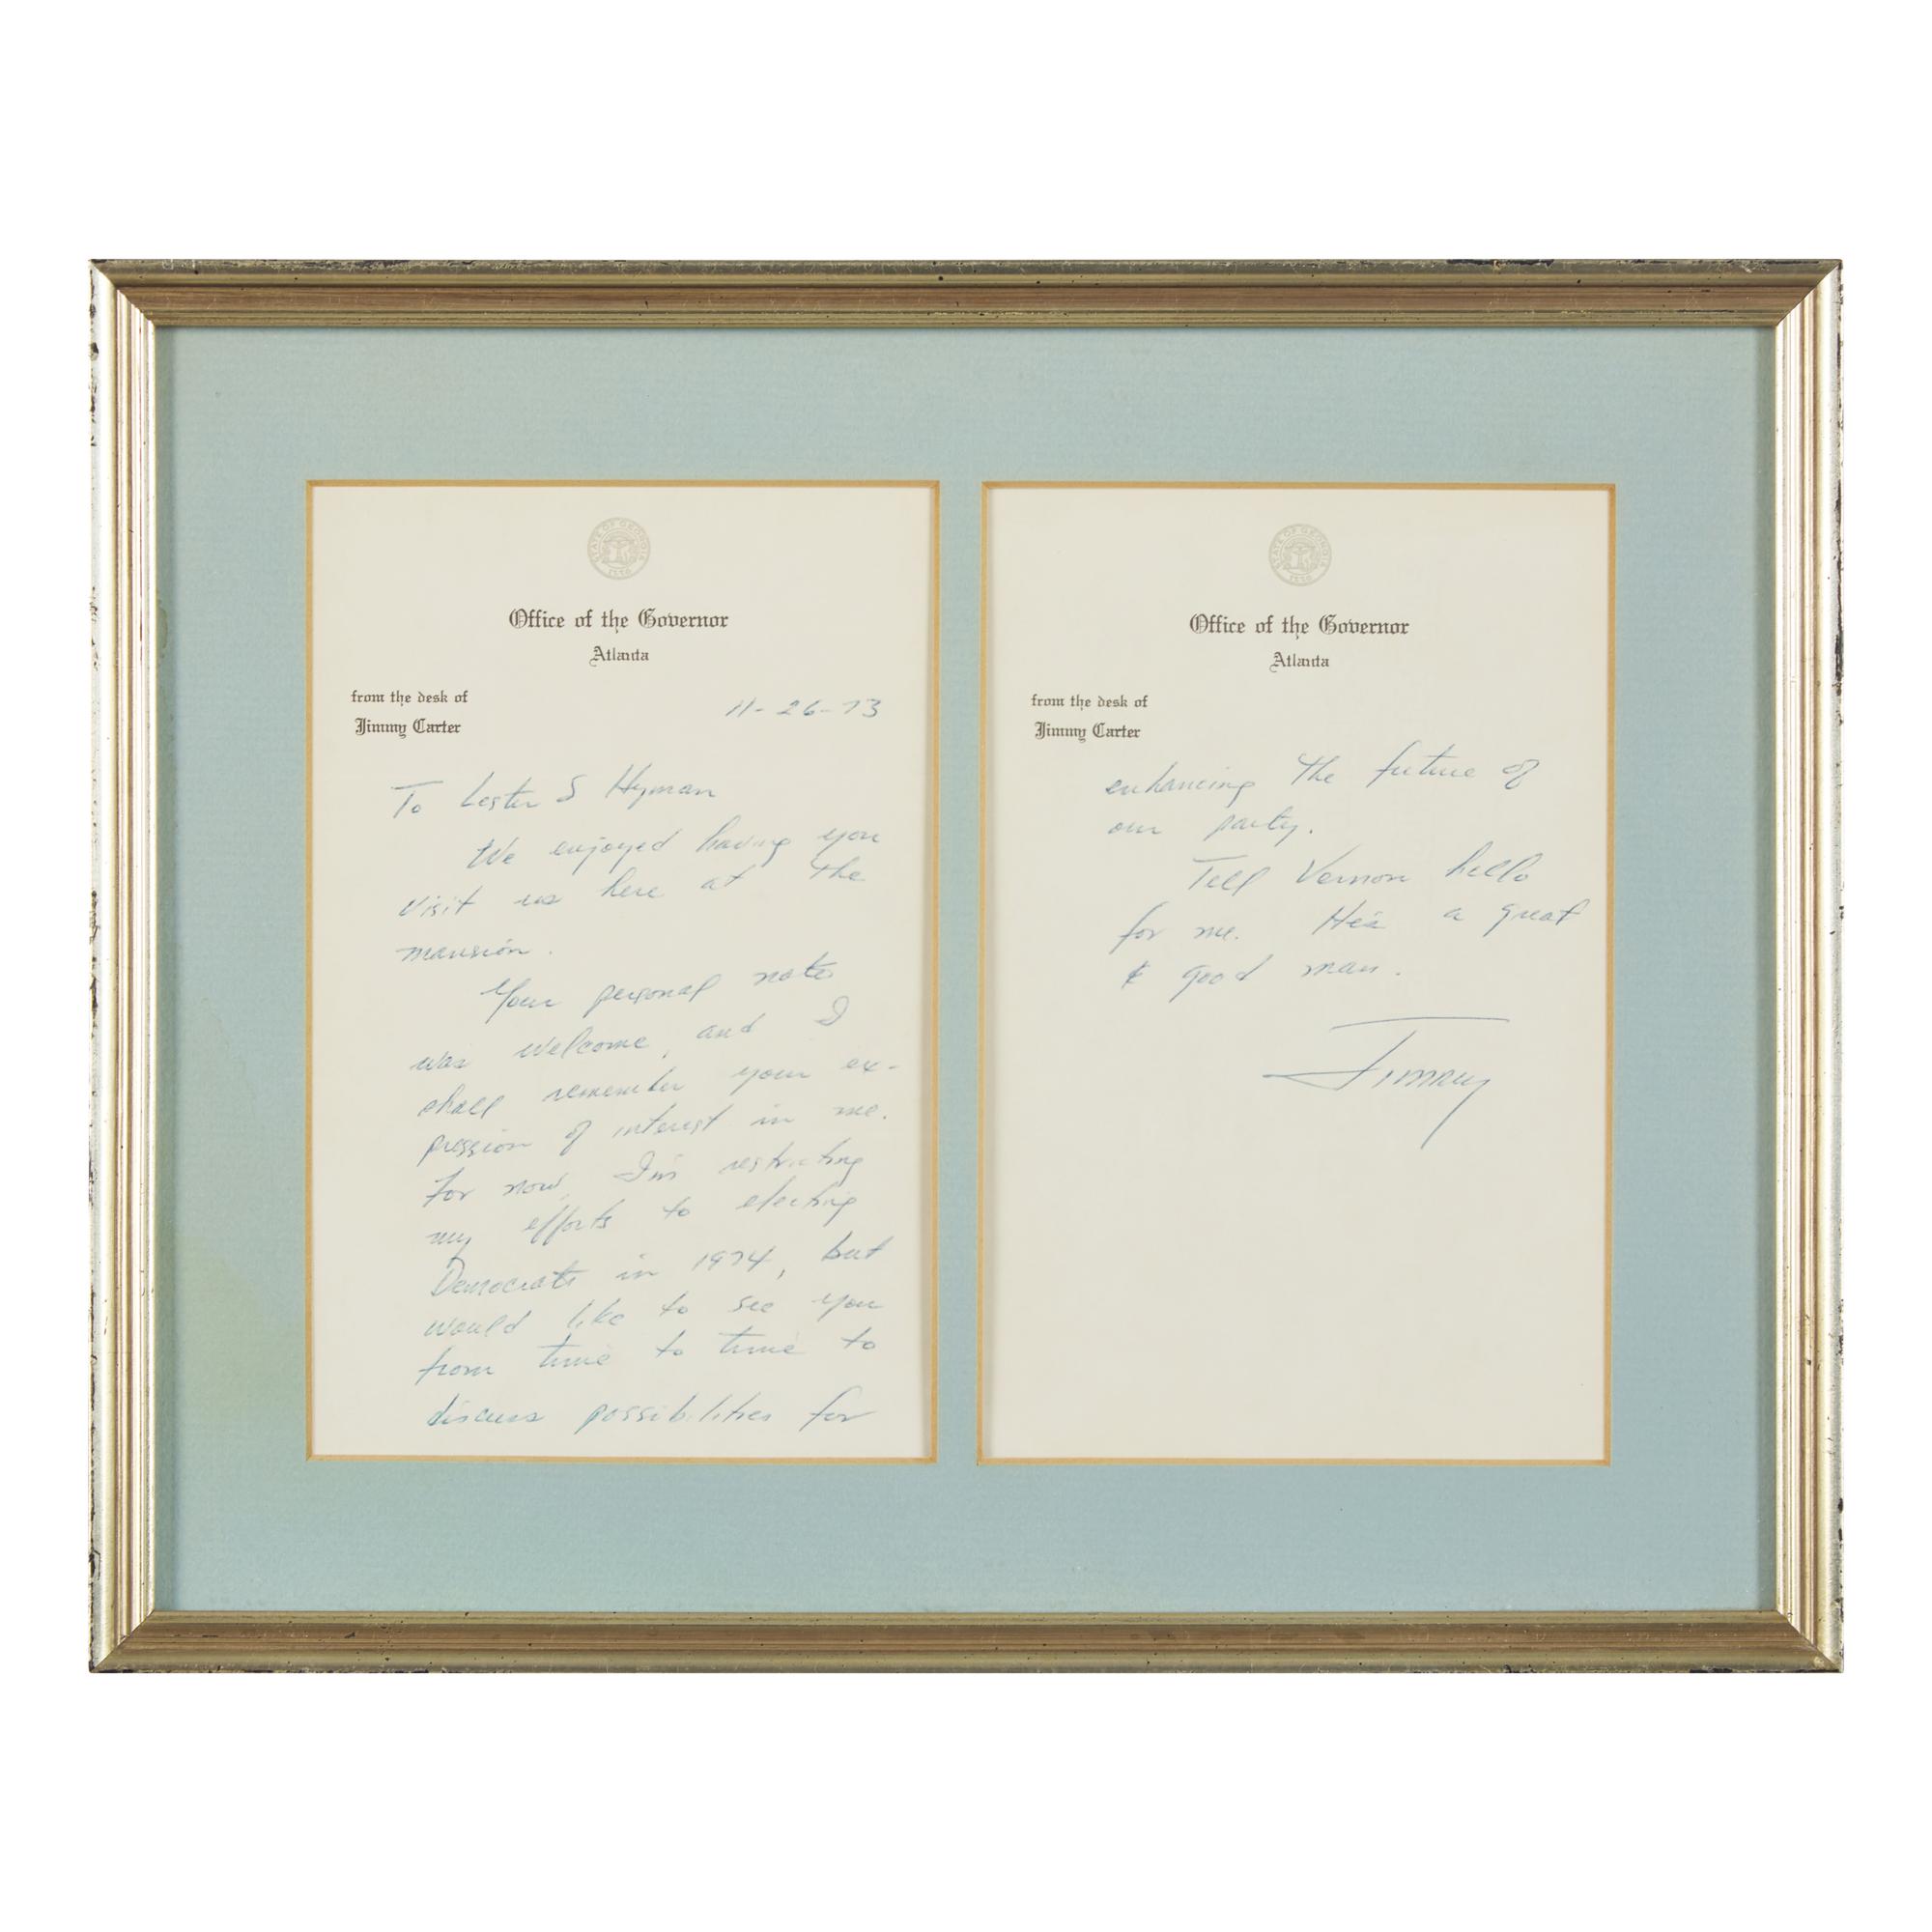 STATE OF GEORGIA
1776
Office of the Governor
Atlanta
from the desk of
Jimmy Carter
11-26-73
To Lester S Hyman
We enjoyed having you
visit us here at the
mansion.
Your personal note
was welcome, and I
shall remember your ex-
pression of interest in me.
For now, I'm restricting
my efforts to electing
Democrats in 1974, but
would like to see you
from time to time to
discuss possibilities for
STATE OF GEORGIA
1776
Office of the Governor
Atlanta
from the desk of
Jimmy Carter
enhancing the future of
our party.
Tell Vernon hello
for me. He's a great
& good man.
Jimmy